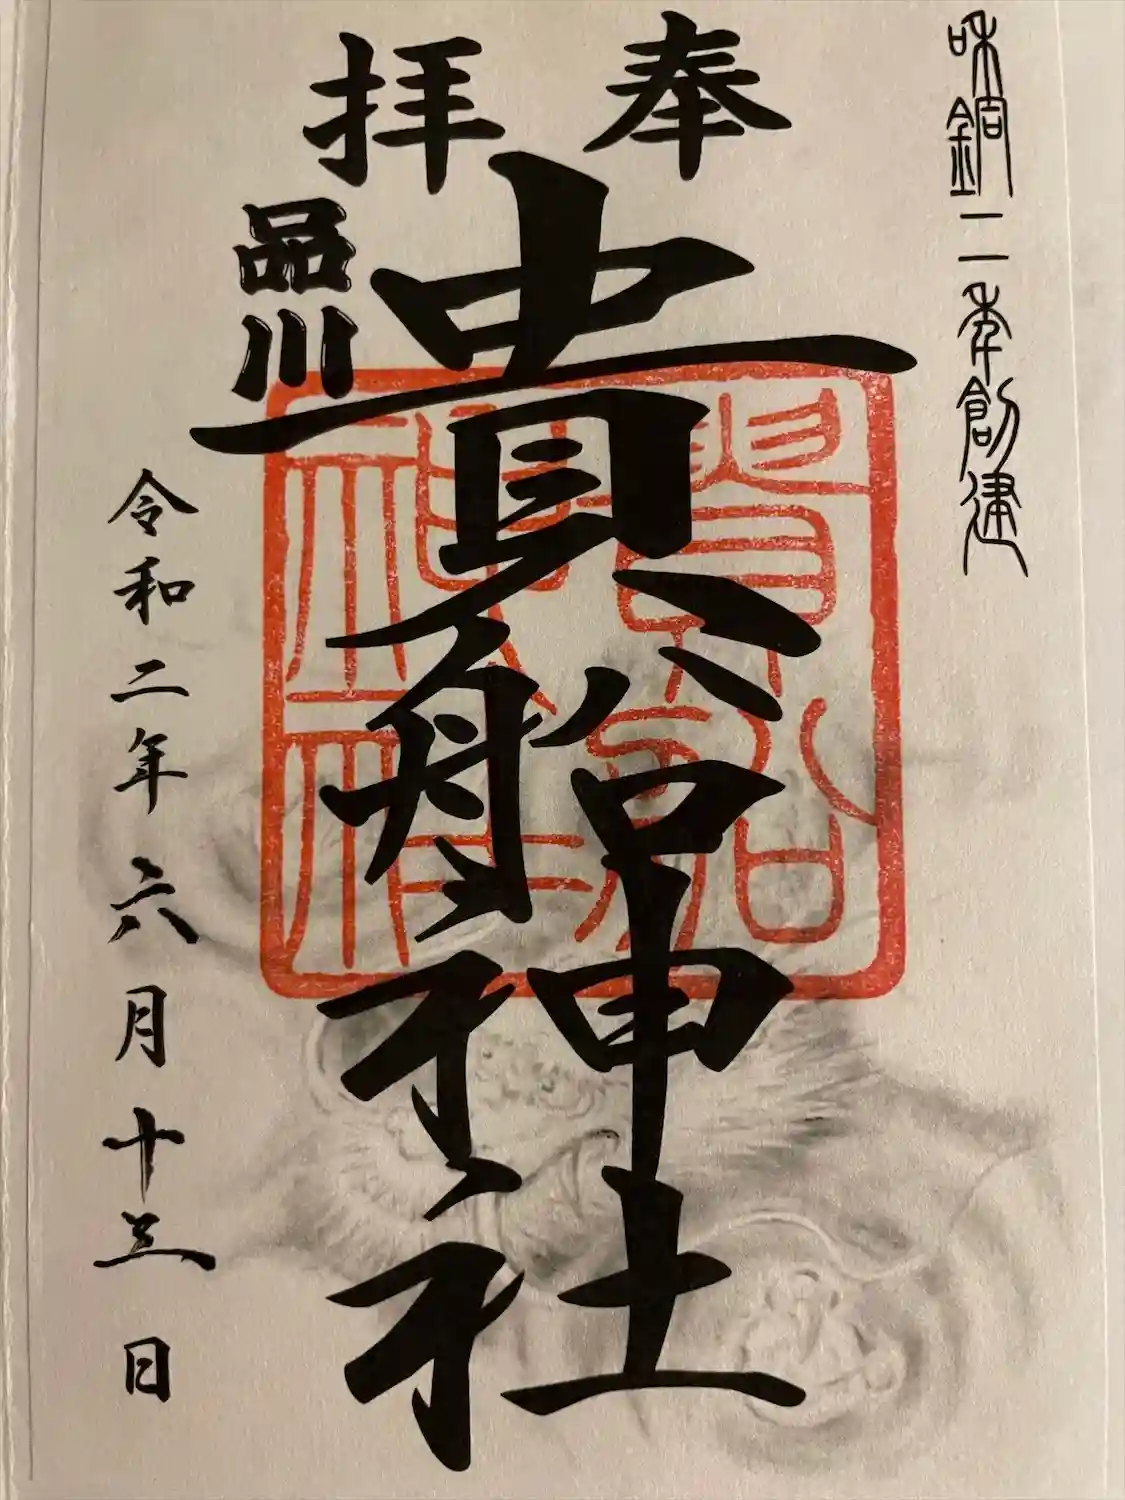 和銅二年創建
奉拝
貴船神社
品川
貴船
神社
令和二年六月十三日